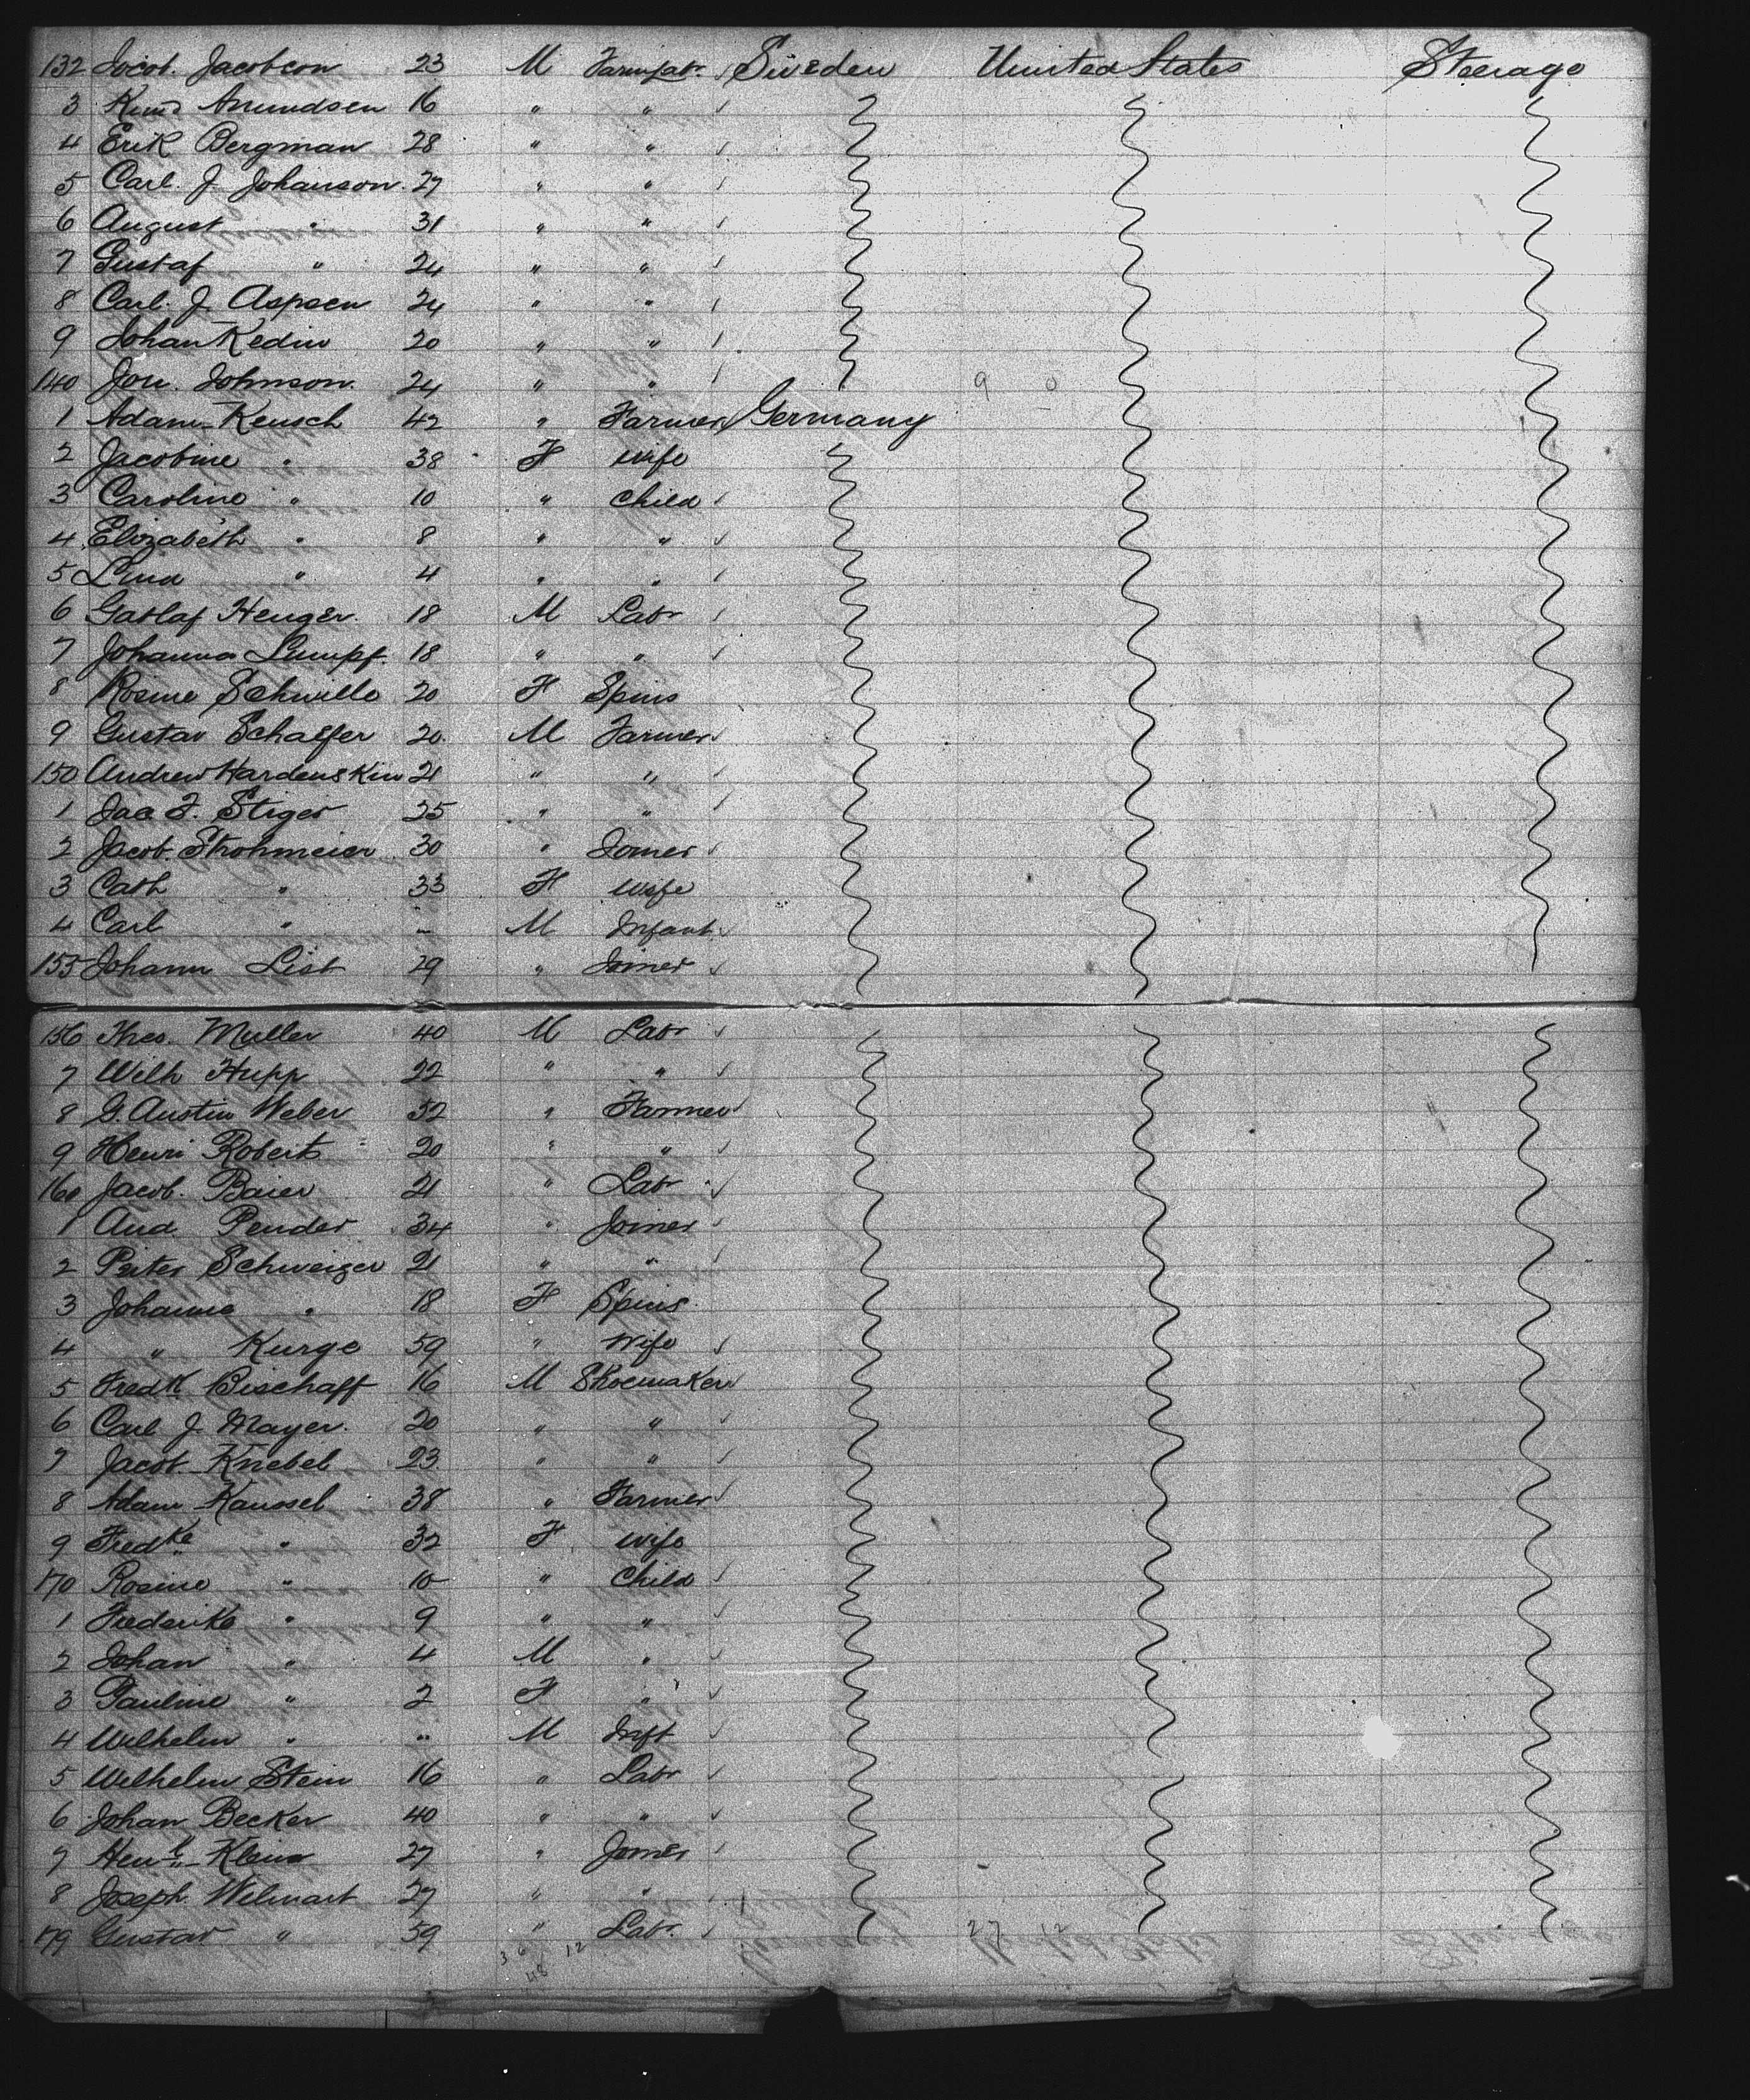 132 Jocob. Jacobson 23 M Farm Labr. Sweden United States Steerage
3 Knud Amundsen 16 " "
4 Erik Bergman 28 " "
5 Carl. J. Johanson. 27 " "
6 August " 31 " "
7 Gustaf " 24 " "
8 Carl. J. Aspsen 24 " "
9 Johan Kedin 20 " "
140 Jon. Johnson. 24 " " 9 0
1 Adam Keusch 42 " Farmer Germany
2 Jacobine " 38 F wife
3 Caroline " 10 " child
4 Elizabeth " 8 " "
5 Lina " 4 " "
6 Gatlaf Henger. 18 M Labr
7 Johanna Lumpf. 18 " "
8 Rosine Schwille 20 F Spins
9 Gustav Schaefer 20. M Farmer
150 Andrew Hardenskin 21 " "
1 Jac F. Stiger 25 " "
2 Jacob. Strohmeier 30 " Joiner
3 Cath " 33 F wife
4 Carl " - M Infant
155 Johann List 29 " Joiner
156 Thes. Muller 40 M Labr
7 Wilh Hupp 22 " "
8 G. Austin Weber 52 " Farmer
9 Henri Robert 20 " "
160 Jacob. Baier 21 " Labr
1 And Pender 34 " Joiner
2 Peiter Schweizer 21 " "
3 Johanne " 18 F Spins.
4 " Kurge 59 " Wife
5 Fredk Bischaff 16 M Shoemaker
6 Carl J. Mayer. 20 " "
7 Jacob Knebel 23. " "
8 Adam Kaussel 38 " Farmer
9 Fredke " 32 F wife
170 Rosine " 10 " Child
1 Frederike " 9 " "
2 Johan " 4 M "
3 Pauline " 2 F "
4 Wilhelm " " M Inft
5 Wilhelm Stein 16 " Labr
6 Johan Becker 40 " "
7 Henh Klein 27 " Joiner
8 Joseph Welmart 27 " "
179 Gustav " 59 " Labr. 27 12
36 12
48